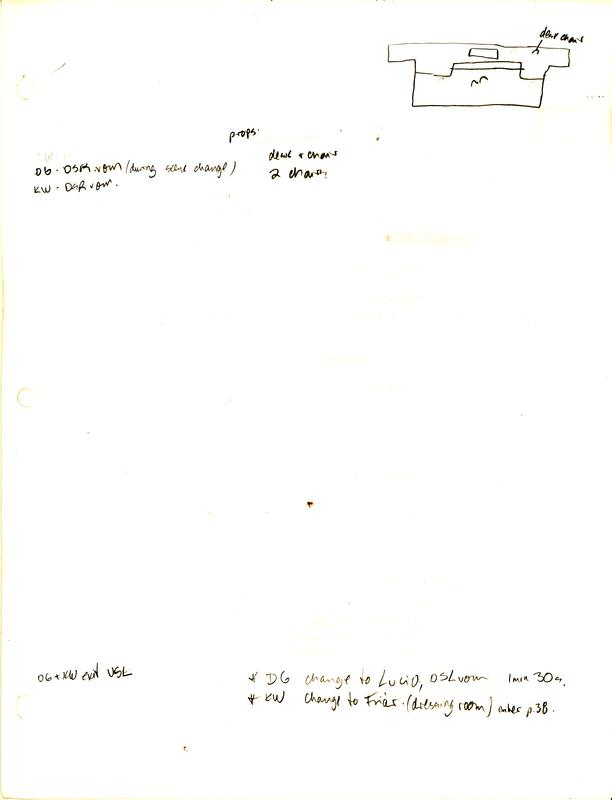 desk chair
props:
desk + chair
DG - DSR vom (during scene change)
2 chairs
KW - DSR vom.
DG + KW exit USL
* DG change to Lucio, DSL vom 1 min 30 s.
* KW change to Friar. (dressing room) enter p.38.